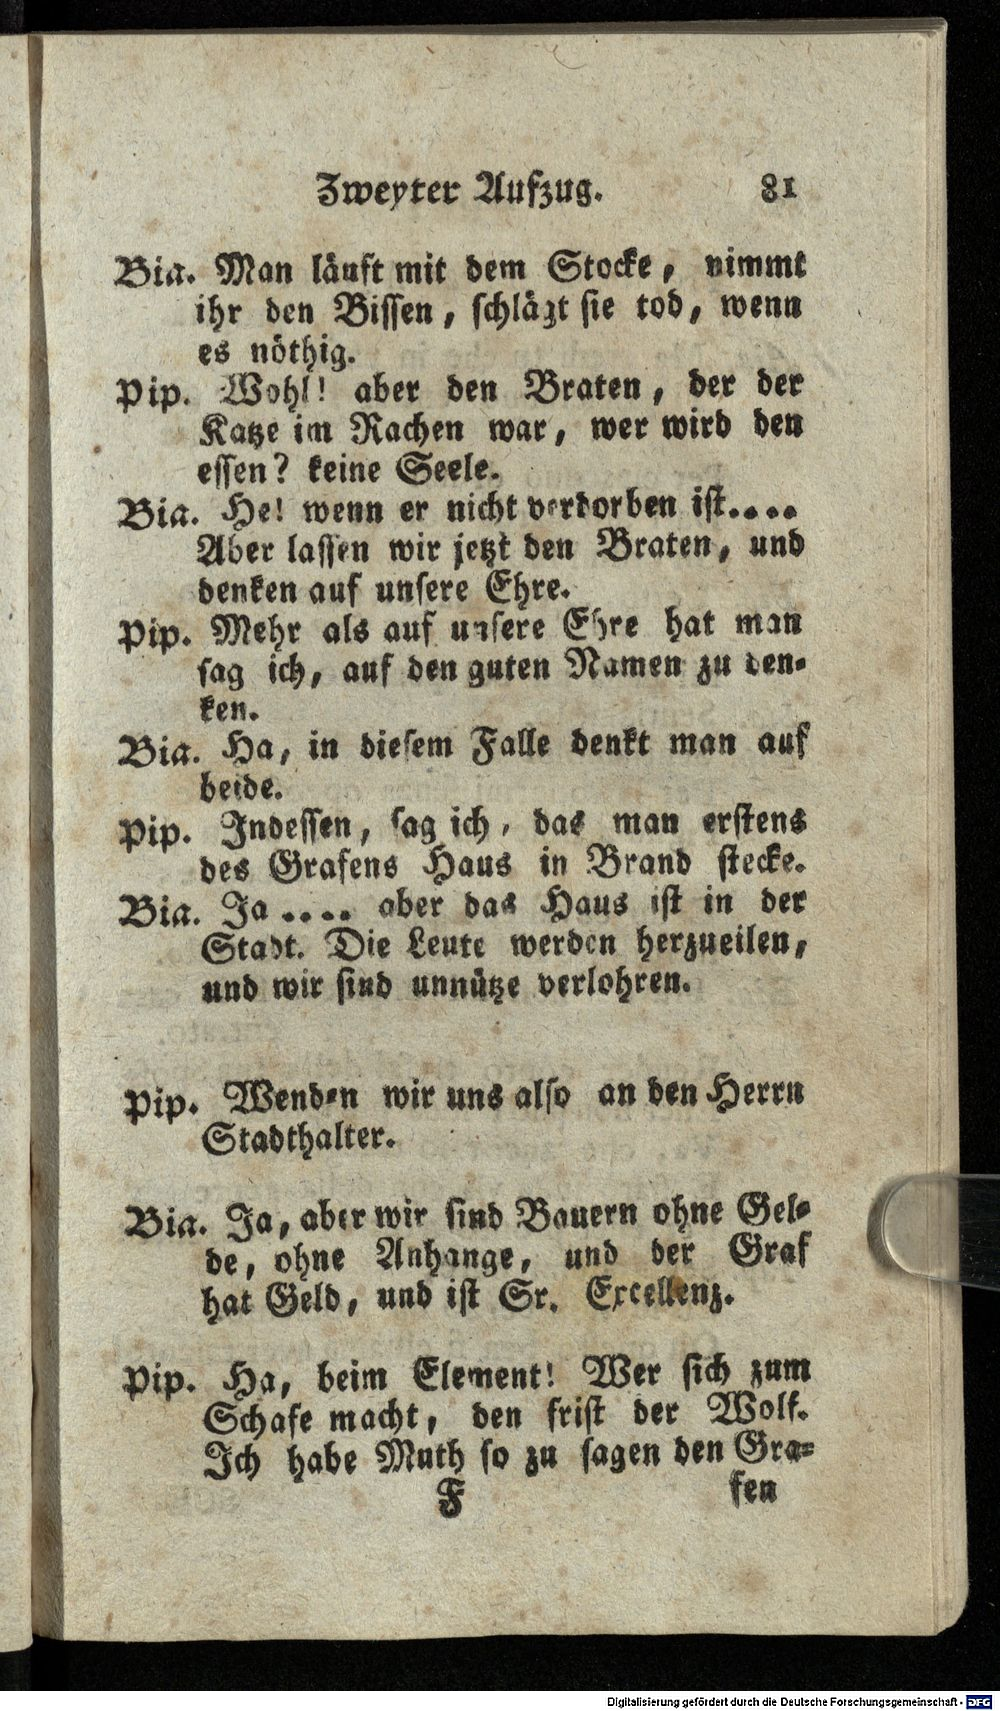 Zweyter Aufzug. 81
Bia. Man läuft mit dem Stocke, nimmt
ihr den Bissen, schlägt sie tod, wenn
es nöthig.
Pip. Wohl! aber den Braten, der der
Katze im Rachen war, wer wird den
essen? keine Seele.
Bia. He! wenn er nicht verdorben ist....
Aber lassen wir jetzt den Braten, und
denken auf unsere Ehre.
Pip. Mehr als auf unsere Ehre hat man
sag ich, auf den guten Namen zu den-
ken.
Bia. Ha, in diesem Falle denkt man auf
beide.
Pip. Indessen, sag ich, das man erstens
des Grafens Haus in Brand stecke.
Bia. Ja .... aber das Haus ist in der
Stadt. Die Leute werden herzueilen,
und wir sind unnütze verlohren.
Pip. Wenden wir uns also an den Herrn
Stadthalter.
Bia. Ja, aber wir sind Bauern ohne Gel-
de, ohne Anhange, und der Graf
hat Geld, und ist Sr. Excellenz.
Pip. Ha, beim Element! Wer sich zum
Schafe macht, den frist der Wolf.
Ich habe Muth so zu sagen den Gra-
F fen
Digitalisierung gefördert durch die Deutsche Forschungsgemeinschaft - DFG